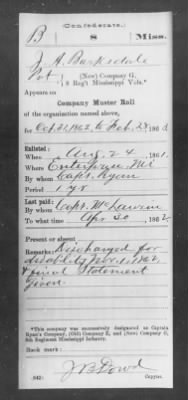 (Confederate.)
B 8 Miss.
J. A. Barksdale
Pvt, (New) Company G,
8 Reg't Mississippi Vols.*
Appears on
Company Muster Roll
of the organization named above,
for Oct 31, 1862, to Feb. 28, 186
Enlisted:
When Aug. 24, 1861.
Where Enterprise, Mi
By whom Capt. Ryan
Period 1 yr
Last paid:
By whom Capt. McLaurin
To what time Apr 30, 1862.
Present or absent
Remarks: Discharged for
disability Nov. 1, 1862
& final Statement
given.
*This company was successively designated as Captain
Ryan's Company, (Old) Company E, and (New) Company G,
8th Regiment Mississippi Infantry.
Book mark:
J B Dowd
(642) Copyist.